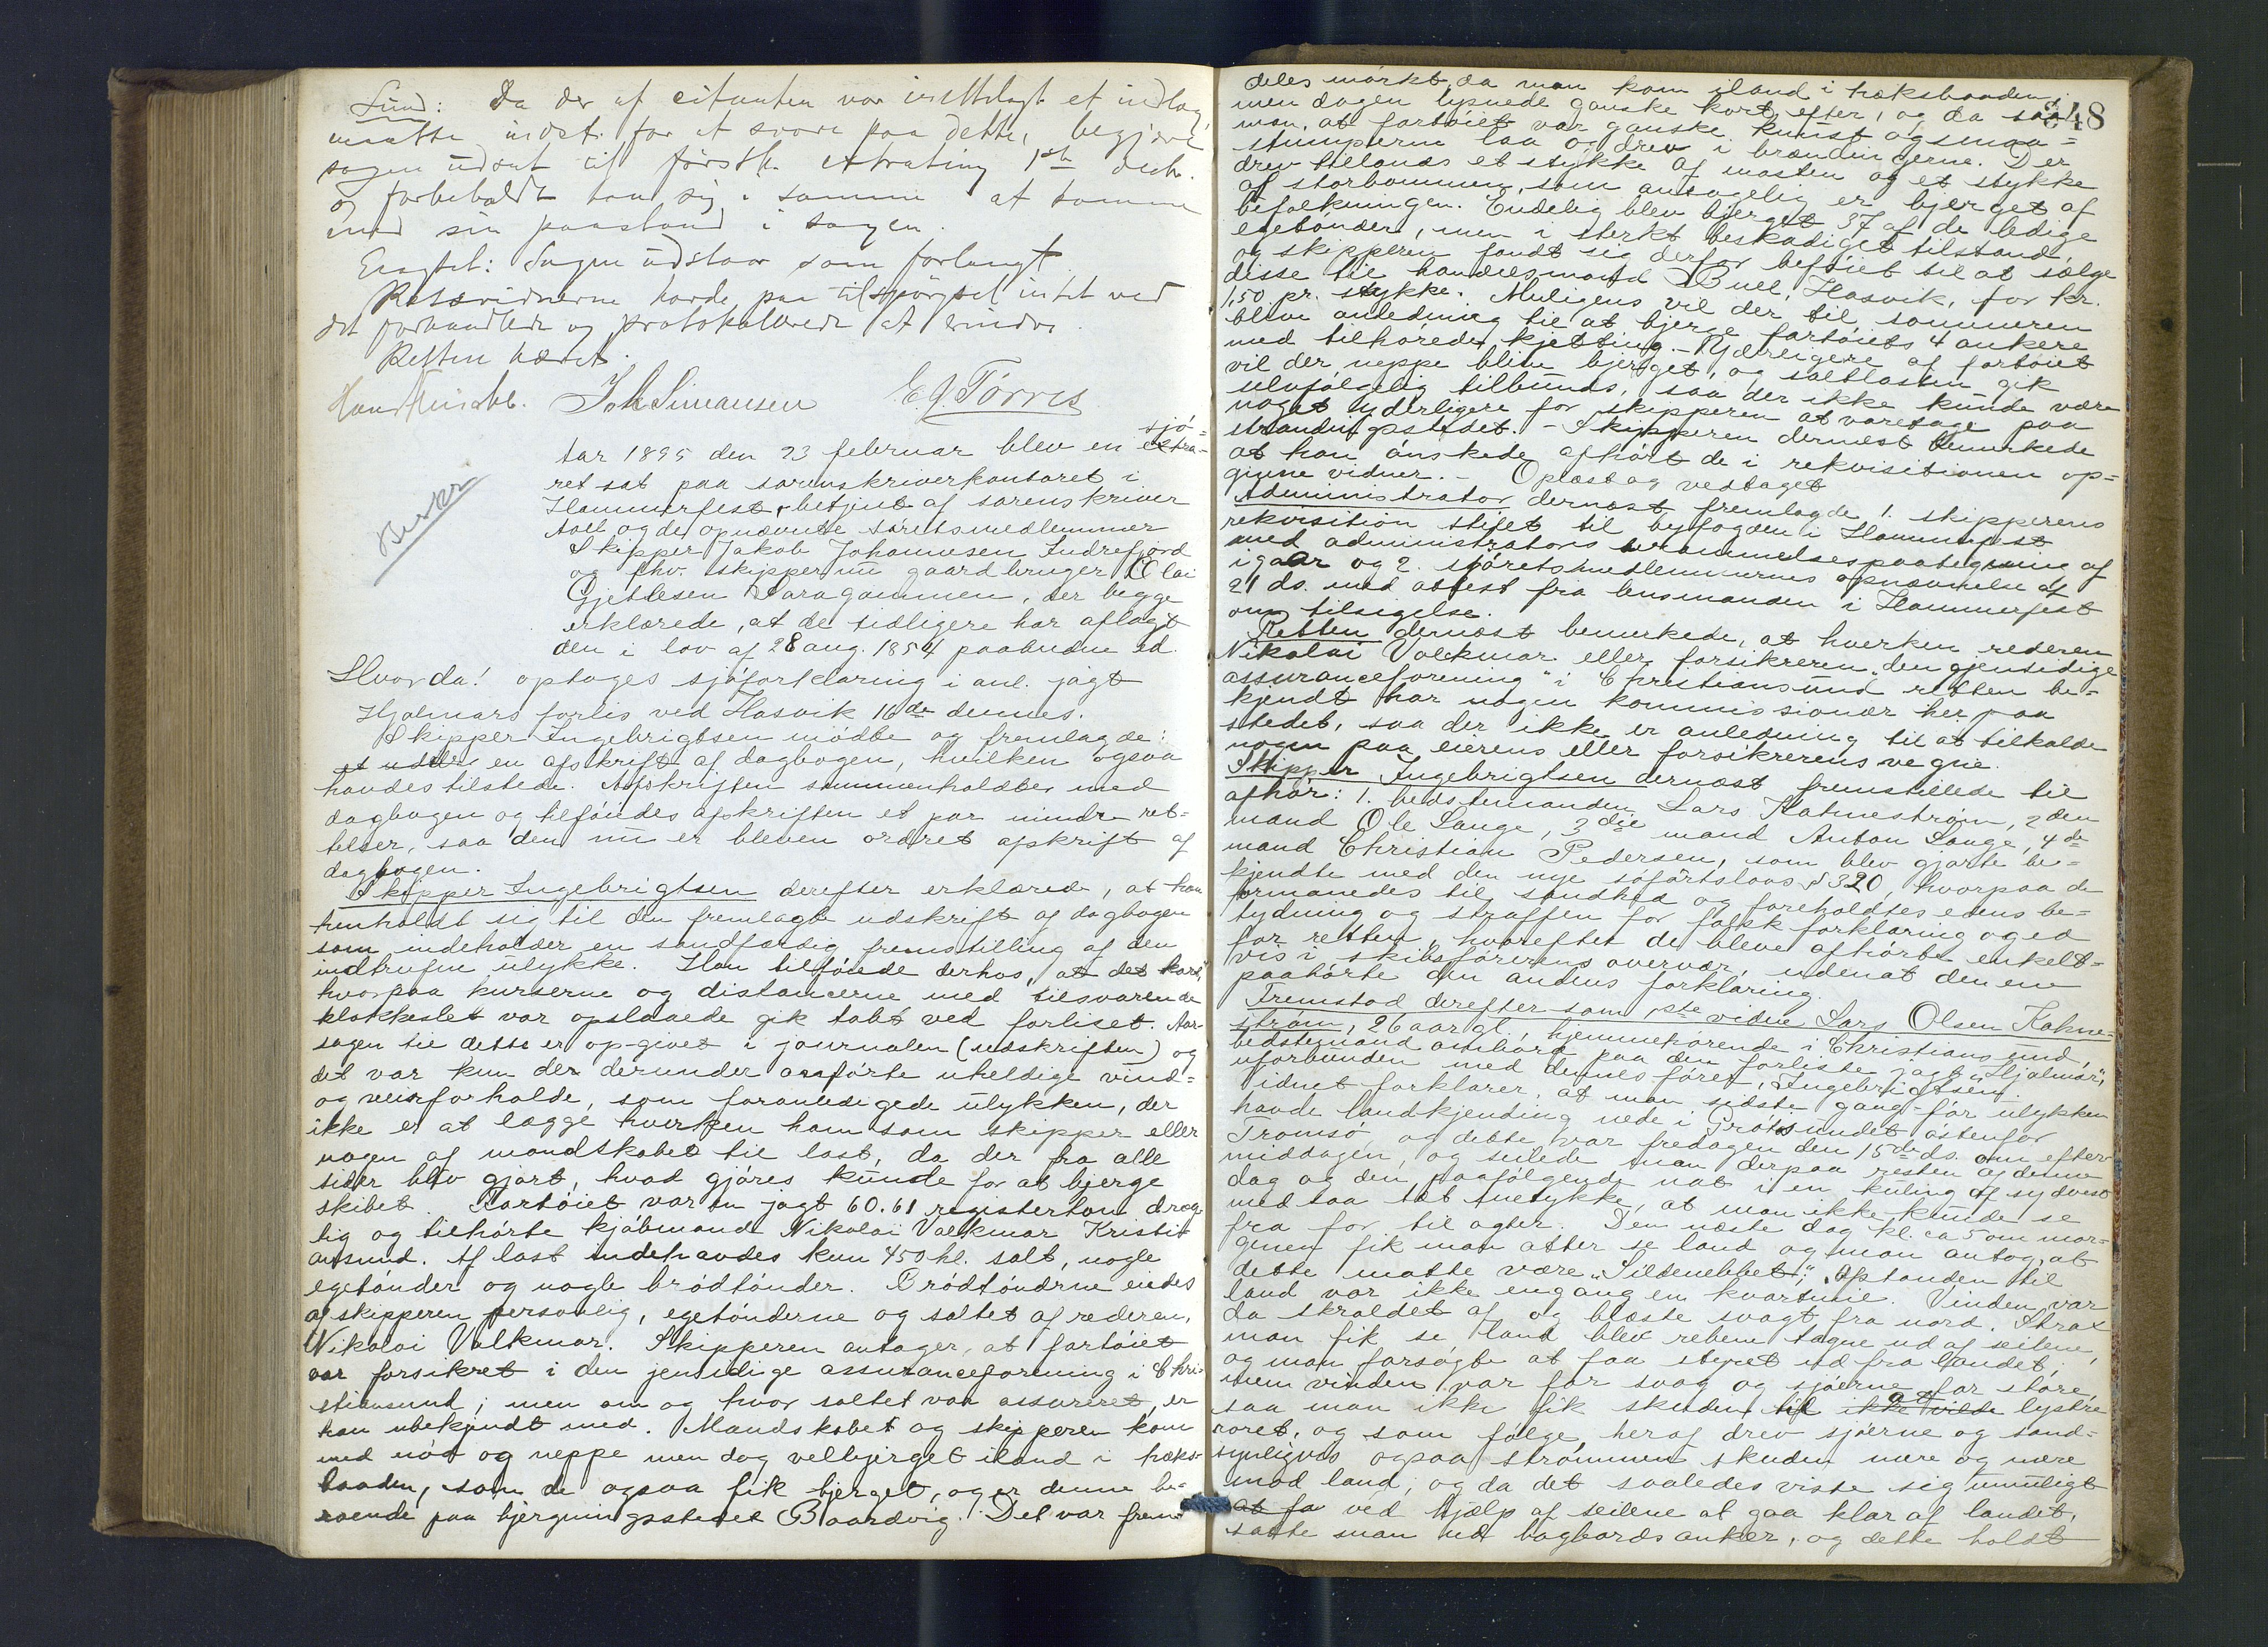 Lund: Da der af citanten var irettelagt et indlæg,
maatte indst. for at svare paa dette, begjære
sagen udsat til förstk. extrating 1ste
og forbeholdt han sig i samme at komme
med sin paastand i sagen.
Eragtet: Sagen udstaar som forlangt
Retsvidnerne havde paa tilspörgsel intet ved
det forhandlede og protokollerede at erindre.
Retten hævet.
Joh Simansen E. A. Törres
Aar 1895 den 23 februar blev en sjö=
ret sat paa sorenskriverkontoret i
Hammerfest, betjent af sorenskriver
og de opnævnte söretsmedlemmer
Skipper Jakob Johannesen Indrefjord
og fhv. skipper nu gaardbruger Olai
Gjetlesen Saragammen, der begge
erklærede, at de tidligere har aflagt
den i lov af 28 aug. 1854 paabudne ed.
Hvorda! optages sjöforklaring i anl. jagt
Hjalmars forlis ved Hasvik 16de dennes.
Skipper Ingebrigtsen mödte og fremlagde:
et uds en afskrift af dagbogen, hvilken ogsaa
havdes tilstede. Afskriften sammenholdtes med
dagbogen og tilföiedes afskriften et par mindre ret=
telser, saa den nu er bleven ordret afskrift af
dagbogen.
Skipper Ingebrigtsen derefter erklærede, at han
henholdt sig til den fremlagte udskrift af dagbogen
som indeholder en sandfærdig fremstilling af den
indtrufne ulykke. Han tilföiede derhos, at det kart,
hvorpaa kurserne og distancerne med tilsvarende
klokkeslet var opslaaede gik tabt ved forliset. Aar-
sagen til dette er op-givet i journalen (udskriften) og
det var kun der derunder anförte uheldige vind=
og veirforholde, som foranledigede ulykken, der
ikke er at lægge hverken ham som skipper eller
nogen af mandskabet til last, da der fra alle
sider blev gjort, hvad gjöres kunde for at bjerge
skibet. Fartöiet var en jagt 60.61 registerton dræg-
tig og tilhörte kjöbmand Nikolai Volkmar Kristi-
ansund. Af last indehavdes kun 450 hl. salt, nogle
egetönder og nogle brödtönder. Brödtönderne eiedes
af skipperen personlig, egetönderne og saltet af rederen,
Nikolai Volkmar. Skipperen antager, at fartöiet
var forsikret i den jensidige assuranceforening i Chri-
stiansund; men om og hvor saltet var assureret, er
han ubekjendt med. Mandskabet og skipperen kom
med nöd og neppe men dog velbjerget iland i hæks-
baaden, som de ogsaa fik bjerget, og er denne be-
roende paa bjergningsstedet Baardvig. Det var frem-
deles mörkt, da man kom iland i hæksbaaden,
men dagen lysnede ganske kort efter, og da saa
man, at fartöiet var ganske knust og smaa=
stumperne laa og drev i brændingerne. Der
drev tillands et stykke af masten og et stykke
af storbommen, som antagelig er bjerget af
befolkningen. Endelig blev bjerget 37 af de ledige
egetönder, men i sterkt beskadiget tilstand,
og skipperen fandt sig derfor beföiet til at sælge
disse til handelsmand Buck, Hasvik, for kr.
1,50 pr. stykke. Muligens vil der til sommeren
blive anledning til at bjerge fartöiets 4 ankere
med tilhörede kjetting. - Yderligere af fartöiet
vil der neppe blive bjerget, og saltlasten gik
selvfölgelig tilbunds, saa der ikke kunde være
noget yderligere for skipperen at varetage paa
strandingsstedet. - Skipperen dernæst bemerkede
at han önskede afhört de i rekvisitionen op=
givne vidner. - Oplæst og vedtaget
Administrator dernæst fremlagde 1. skipperens
rekvisition stilet til byfogden i Hammerfest
med administrators berammelsespaategning af
igaar og 2. sjöretsmedlemmernes opnævnelse af
21 ds. med attest fra lensmanden i Hammerfest
om tilsigelse.
Retten dernæst bemerkede, at hverken rederen
Nikolai Volckmar eller forsikreren „den gjensidige
assuranceforening" i Christiansund retten be=
kjendt har nogen kommissionær her paa
stedet, saa der ikke er anledning til at tilkalde
nogen paa eierens eller forsikrerens vegne.
Skipper Ingebrigtsen dernæst fremstillede til
afhör: 1. bedstemanden Lars Kahneström, 2den
mand Ole Lange, 3die mand Anton Lange, 4de
mand Christian Pedersen, som blev gjorte be=
kjendte med den nye söfartslovs § 320, hvorpaa de
formanedes til sandhed og foreholdtes edens be=
tydning og straffen for falsk forklaring og ed
for retten, hvorefter de bleve afhörte enkelt=
vis i skibsförerens overvær, udenat den ene
paahörte den andens forklaring.
Fremstod derefter som 1ste vidne Lars Olsen Kahne=
ström, 26 aar gl., hjemmehörende i Christiansund,
bedstemand ombord paa den forliste jagt „Hjalmar",
uforbunden med dennes förer, Ingebrigtsen.
idnet forklarer, at man sidste gang för ulykken
havde landkjending nede i Grötsundet östenfor
Tromsö, og dette var fredagen den 15de ds. om efter-
middagen, og seilede man derpaa resten af denne
dag og den paafölgende nat i en kuling af sydvest
med saa tæt snetykke, at man ikke kunde se
fra for til agter. Den næste dag kl. ca 5 om mor=
genen fik man atter se land og man antog, at
dette maatte være „Sildenebbet", Afstanden til
land var ikke engang en kvartmil. Vinden var
da skraldet af og blæste svagt fra nord. Strax
man fik se land blev rebene tagne ud af seilene,
og man forsögte at faa styret ud fra landet,
men vinden var for svag og sjöerne for store,
saa man ikke fik skuden til ikke vilde at lystre
roret, og som fölge heraf drev sjöerne og sand=
synligvis ogsaa strömmen skuden mere og mere
mod land, og da det saaledes viste sig umuligt
at fa ved hjælp af seilene at gaa klar af landet,
satte man ud bagbords anker, og dette holdt
348